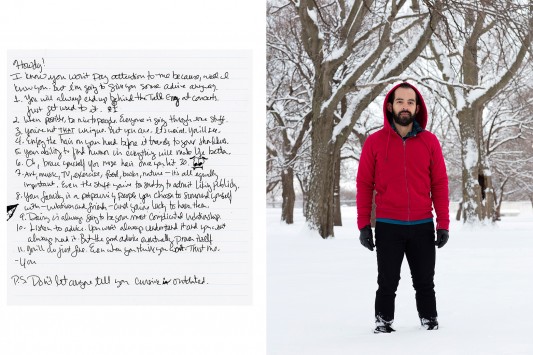 Howdy!
I know you won't pay attention to me because, well I
know you. But I'm going to give you some advice anyway.
1. You will always end up behind the Tall Guy at concerts.
Just get used to it.
2. When possible, be nice to people. Everyone is going through some stuff.
3. You're not THAT unique. But you are. It's weird. You'll see.
4. Enjoy the hair on your head before it travels to your shoulders.
5. Your ability to find humor in everything will make life better.
6. Oh, brace yourself you lose hair once you hit 30.
7. Art, music, TV, exercise, food, books, nature - it's all equally
important. Even the stuff you're to admit publicly.
8. Your family is a potpourri of people you choose to surround yourself
with - relatives and friends - and you're lucky to have them.
9. Dating is always going to be your most complicated relationship.
10. Listen to advice. You won't always understand it and you won't
always need it. But the good advice eventually proves itself
11. You'll do just fine. Even when you think you won't. Trust me.
-You
P.S. Don't let anyone tell you cursive is outdated.